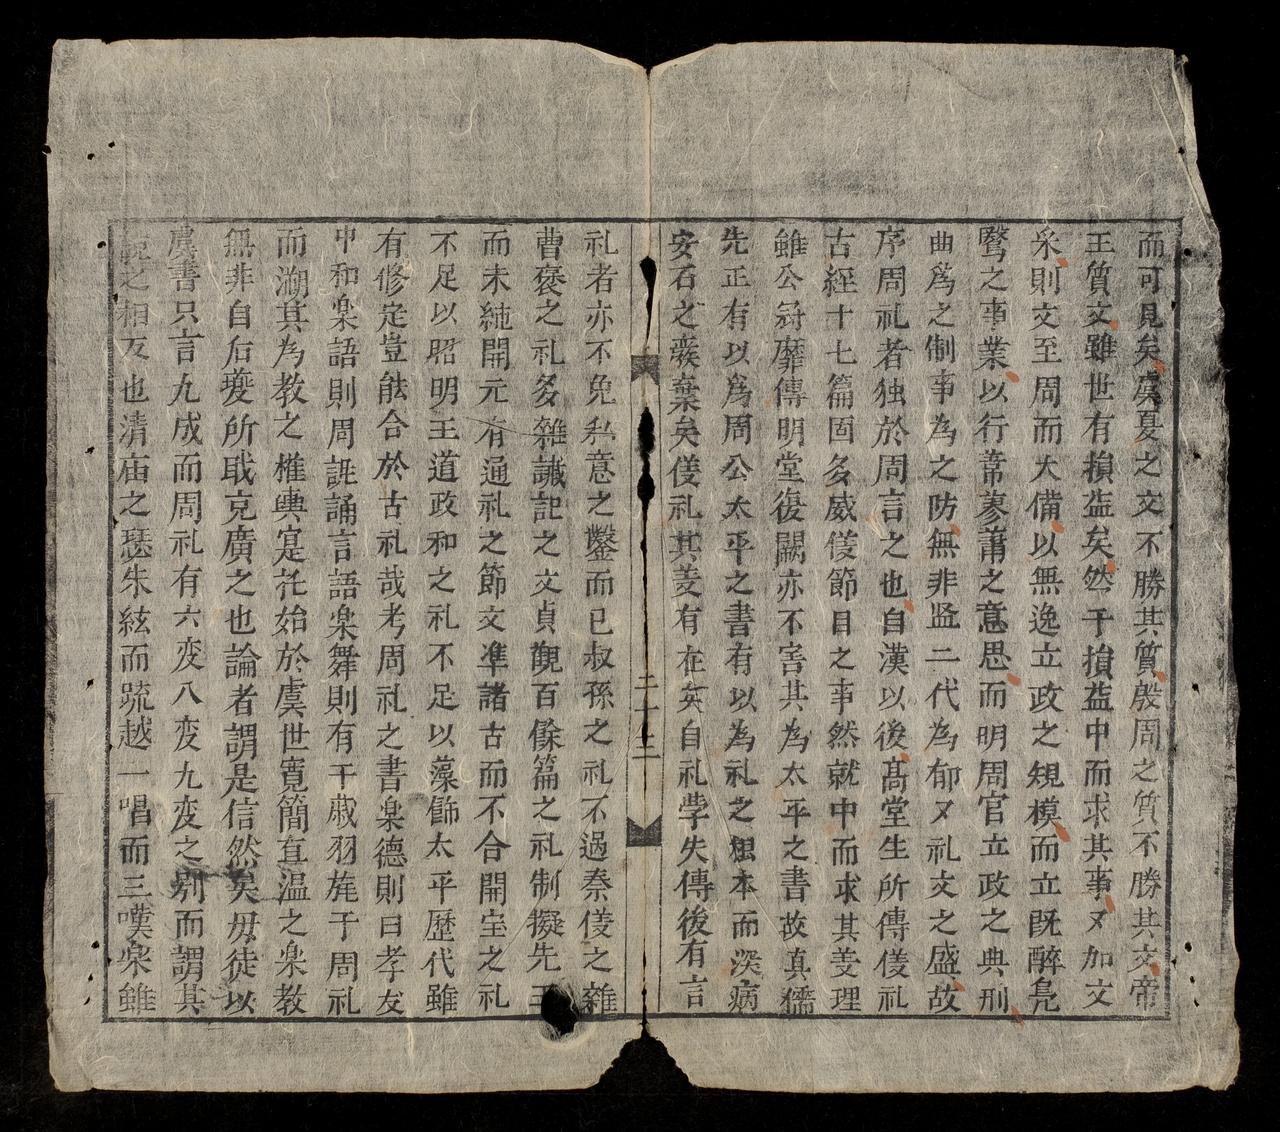 而可見矣虞夏之文不勝其質殷周之質不勝其文帝
王質文雖世有損益矣然于損益中而求其事又加文
采則文至周而大備以無逸立政之規模而立既醉鳧
鷖之事業以行葦蓼蕭之意思而明周官立政之典刑
曲爲之制事為之防無非监二代為郁又礼文之盛故
序周礼者独於周言之也自漢以後髙堂生所傳儀礼
古經十七篇固多威儀節目之事然就中而求其姜理
雖公冠靡傳明堂復闕亦不害其為太平之書故真儒
先正有以爲周公太平之書有以為礼之根本而深病
安石之癈棄矣儀礼其姜有在矣自礼學失傳後有言
二十三
礼者亦不免私意之鑿而已叔孫之礼不過秦儀之雜
曹褒之礼多雜讖記之文貞觀百餘篇之礼制擬先王
而未純開元有通礼之節文準諸古而不合開宝之礼
不足以昭明王道政和之礼不足以藻飾太平歷代雖
有修定豈能合於古礼哉考周礼之書楽德則曰孝友
中和楽語則周誂誦言語楽舞則有干戚羽旄于周礼
而溯其為教之権輿寔託始於虞世寛簡直温之楽教
無非自后夔所戢克廣之也論者謂是信然矣毋徒以
虞書只言九成而周礼有六变八变九变之别而謂其
之相反也清庙之瑟朱絃而疏越一唱而三嘆楽雖